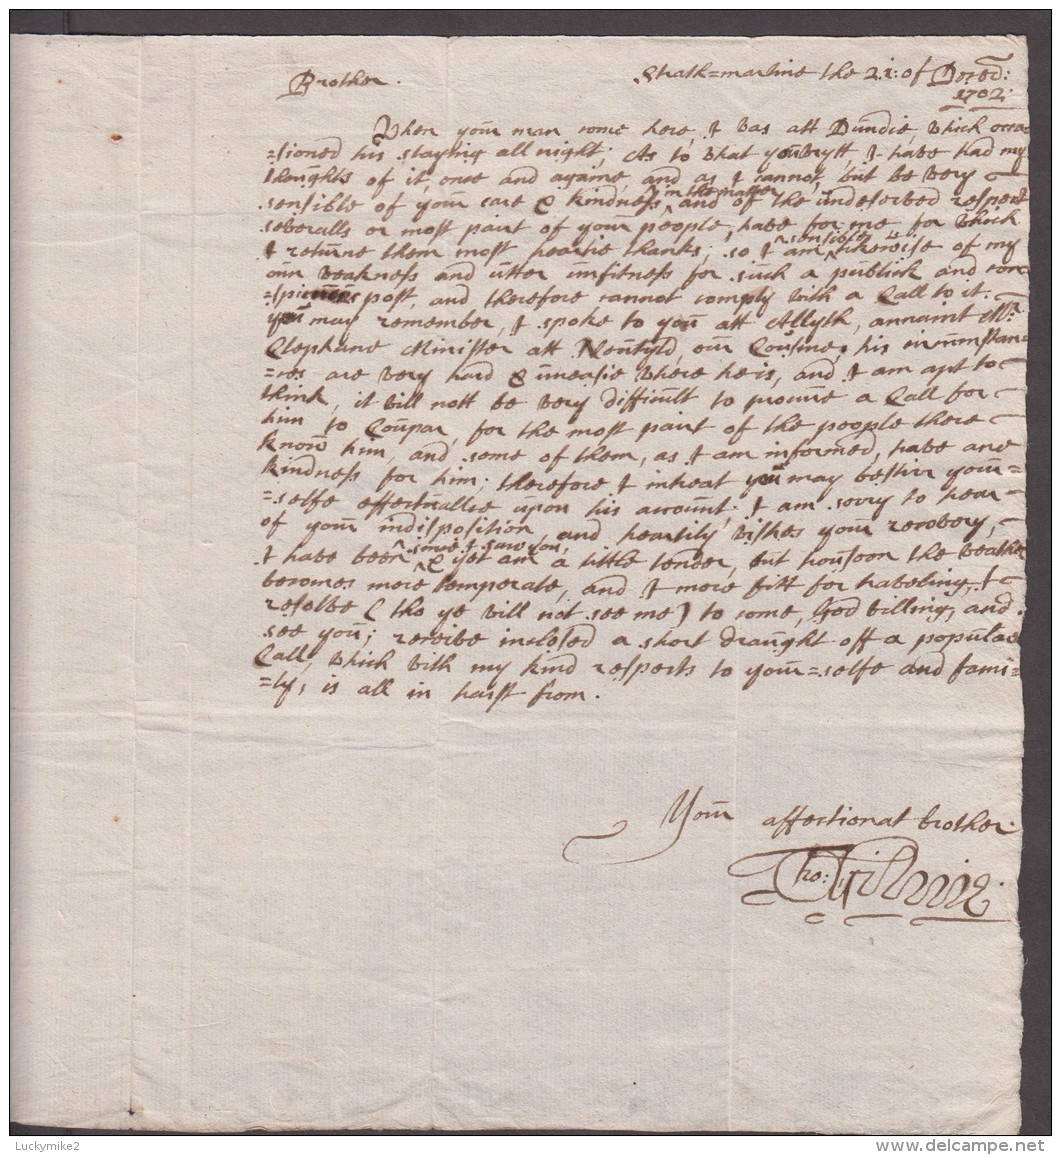 Strath=martine the 21: of Deced:
1702:
Brother.
When your man come here, I was att Dundie, which occa=
=sioned his staying all night; As to what you wrytt, I have had my
thoughts of it, once and againe, and as I cannot, but be very
sensible of your care & kindness ^in the matter and of the undeserved respect
severalls or most part of your people, have for me for which
I returne them most heartie thanks; so I am ^sensible likewise of my
oun weakness and utter unfitness for such a publick and con=
=spicuous post, and therefore cannot comply with a Call to it.
you may remember, I spoke to you att Allyth, annaint Mr:
Clephane Minister att Neutyld, our Cousine, his circumstan=
=ces are very hard & uneasie where he is, and I am apt to
think, it will nott be very difficult to procure a Call for
him to Coupar, for the most pairt of the people there
know him, and some of them, as I am informed, have ane
kindness for him; therefore I intreat you may bestirr your=
=selfe effectuallie upon his account; I am sorry to hear
of your indisposition, and heartily wishes your recovery,
I have been ^since I saw you, & yet am a little tender, but housoon the weather
becomes more temperate, and I more fitt for traveling, I
resolve (tho ye will not see me) to come, God willing, and
see you; receive inclosed a short draught off a popular
Call, which with my kind respects to your=selfe and fami=
=ly, is all in haist from.
Your affectionat brother
Tho:
Luckymike2
delcampe.net